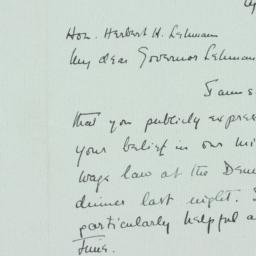 Hon. Herbert H. Lehmann
My dear Governor Lehmann
I am
that you publicly expre
your belief in our mi
wage law at the Dem
dinner last night.
particularly helpful a
time.